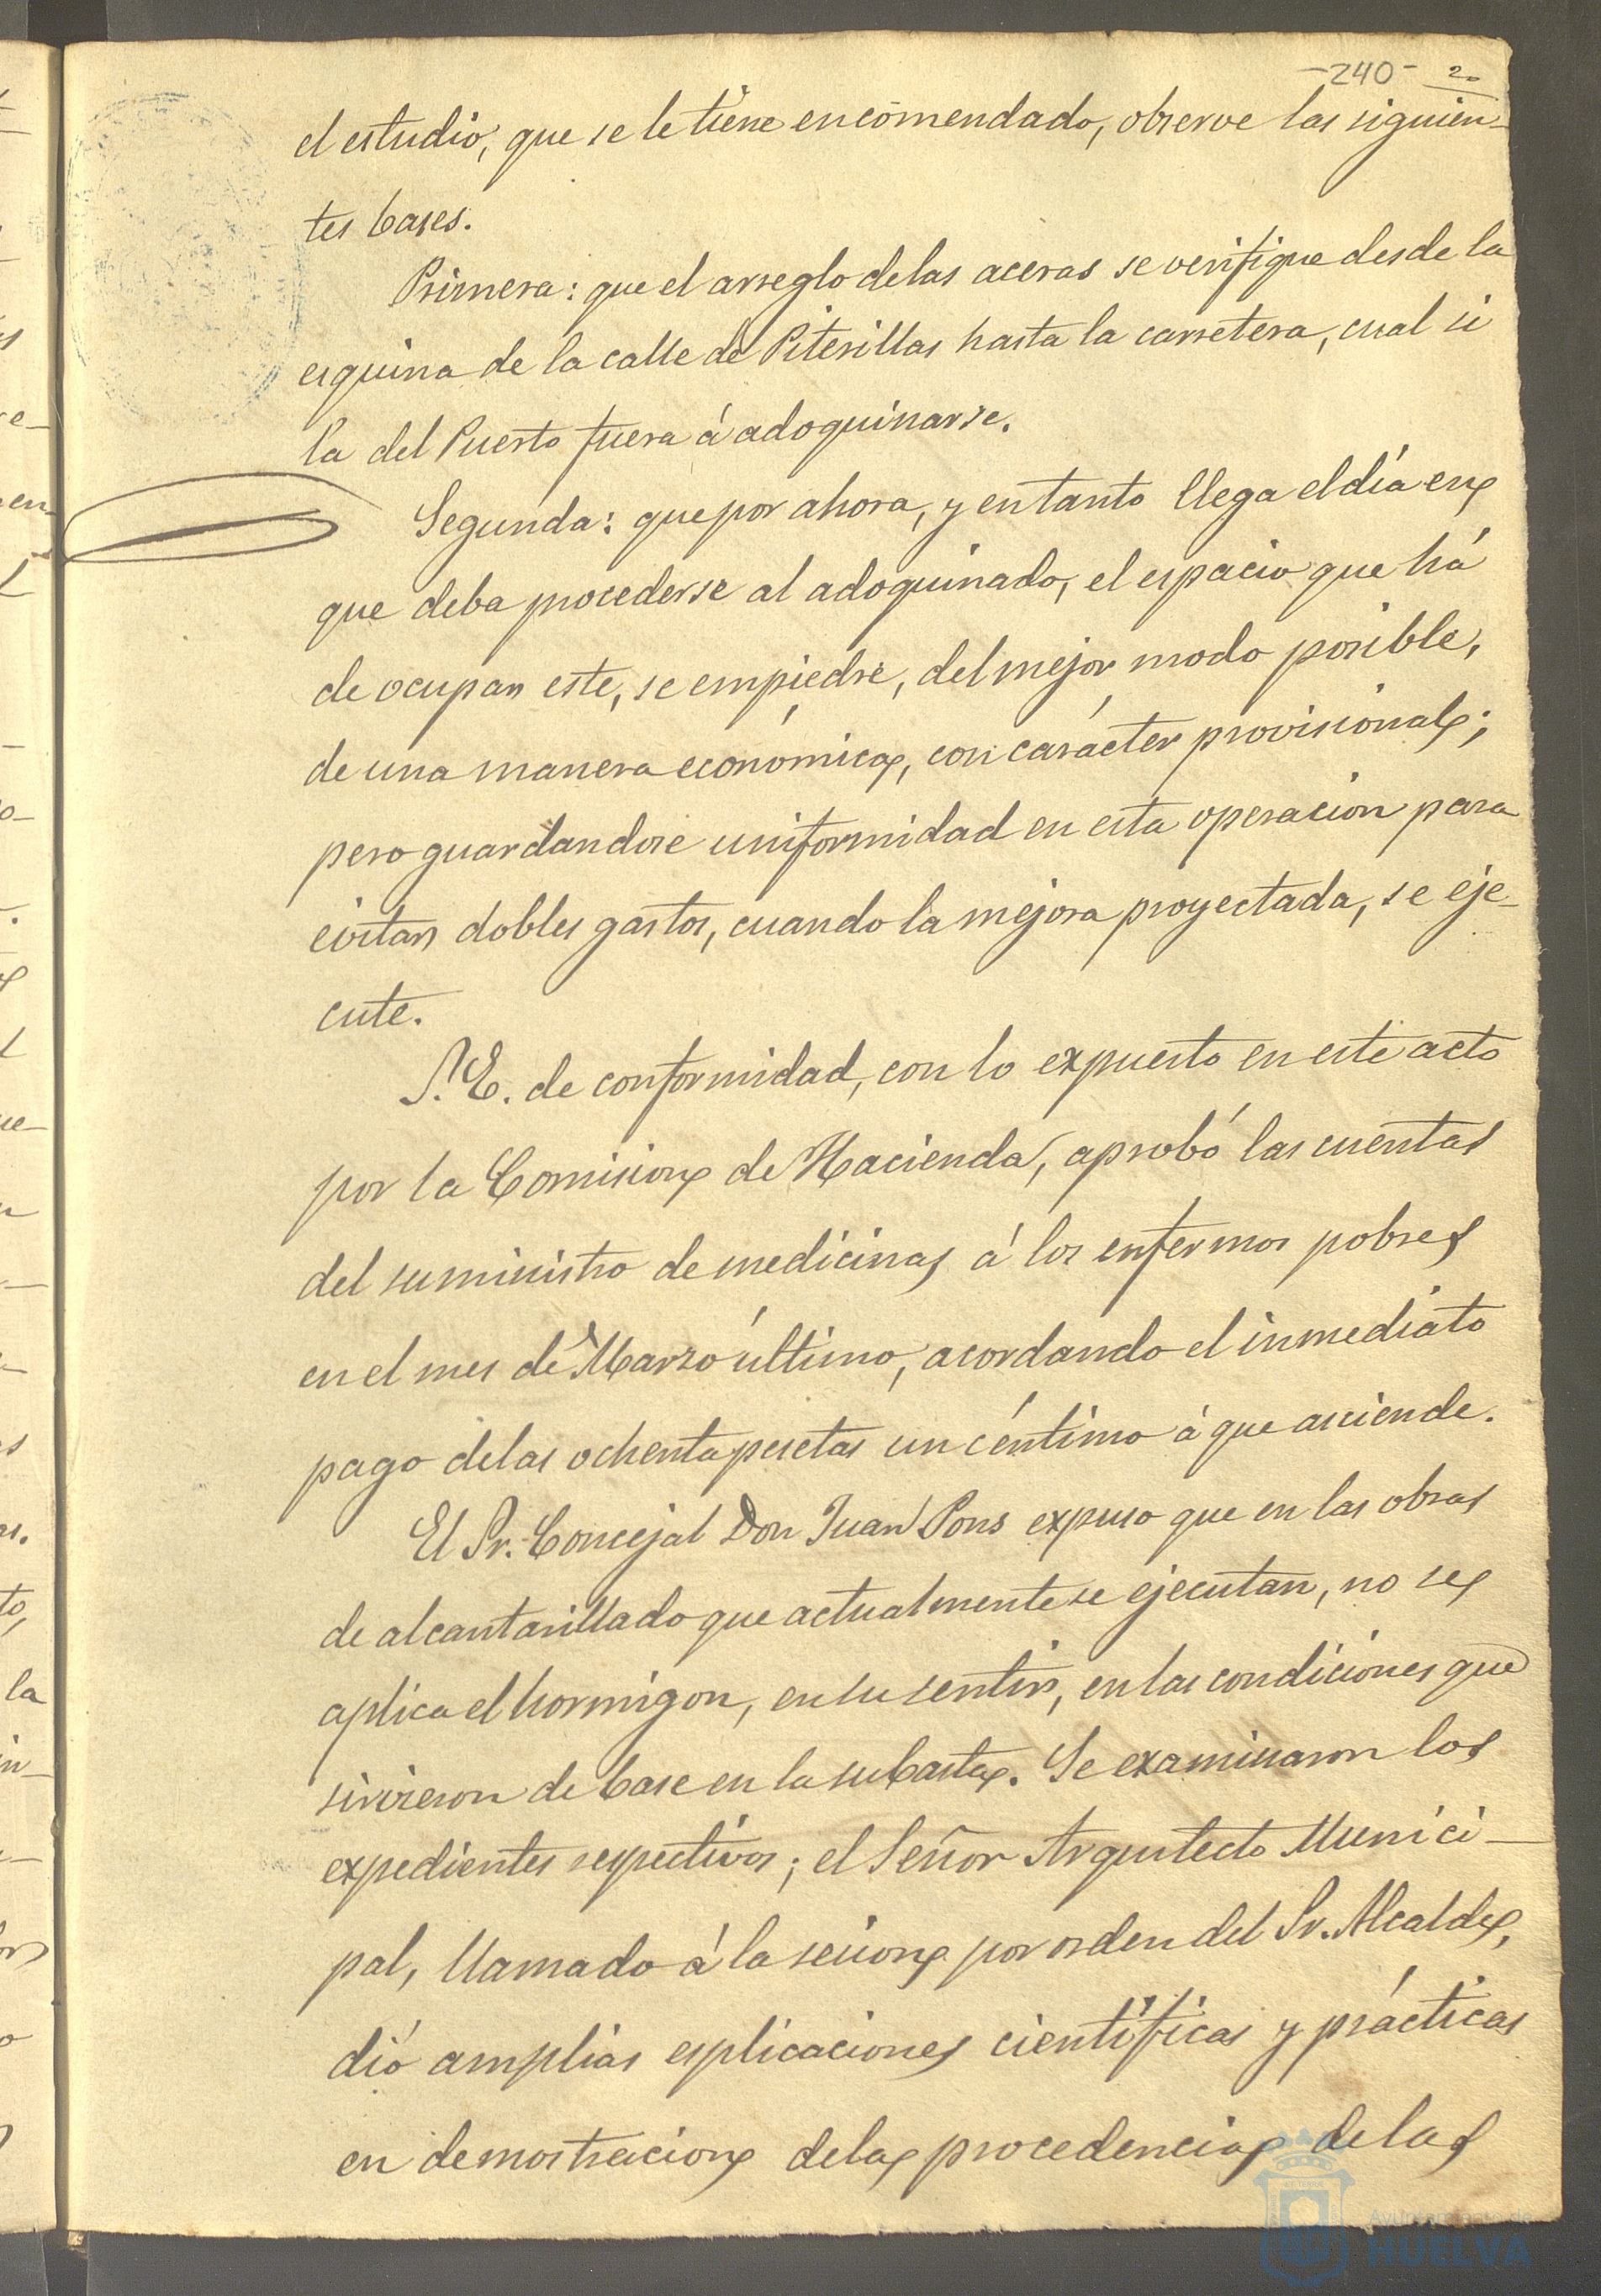 -240- 2.
el estudio, que se le tiene encomendado, observe las siguien-
tes bases.
Primera: que el arreglo de las aceras se verifique desde la
esquina de la calle de Piterillas hasta la carretera, cual si
la del Puerto fuera á adoquinarse.
Segunda: que por ahora, y en tanto llega el día en
que deba procederse al adoquinado, el espacio que há
de ocupar este, se empiedre, del mejor modo posible,
de una manera económica, con carácter provisional;
pero guardandose uniformidad en esta operacion para
evitar dobles gastos, cuando la mejora proyectada, se eje-
cute.
S. E. de conformidad, con lo expuesto en este acto
por la Comision de Hacienda, aprobó las cuentas
del suministro de medicinas á los enfermos pobres
en el mes de Marzo último, acordando el inmediato
pago de las ochenta pesetas un céntimo á que asciende.
El Sr. Concejal Don Juan Pons expuso que en las obras
de alcantarillado que actualmente se ejecutan, no se
aplica el hormigon, en su sentir, en las condiciones que
sirvieron de base en la subasta. Se examinaron los
expedientes respectivos; el Señor Arquitecto Munici-
pal, llamado á la sesion por orden del Sr. Alcalde,
dió amplias esplicaciones científicas y prácticas
en demostracion de la procedencia de las
Ayuntamiento de
HUELVA